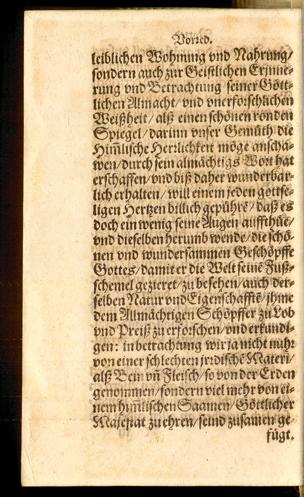 Vorred.
leiblichen Wohnung vnd Nahrung/
sondern auch zur Geistlichen Erjnne-
rung vnd Betrachtung seiner Gött-
lichen Almacht/ vnd vnerforschlichen
Weißheit/ alß einen schönen ronden
Spiegel/ darinn vnser Gemüth die
Him̃lische Herrlichkeit möge anscha-
wen/ durch sein almächtigs Wort hat
erschaffen/ vnd biß daher wunderbar-
lich erhalten/ will einem jeden gottse-
ligen Hertzen billich gepührē/ daß es
doch ein wenig seine Augen auffthüe/
vnd dieselben herumb wende/ die schö-
nen vnd wundersammen Geschöpffe
Gottes/ damit er die Welt seinē Füß-
schemel gezieret/ zu besehen/ auch der-
selben Natur vnd Eigenschafftē/ jhme
dem Allmächtigen Schöpffer zu Lob
vnd Preiß zu erforschen/ vnd erkündi-
gen: in betrachtung wir ja nicht nuhr
von einer schlechten jrdischē Materi/
alß Bein vñ Fleisch/ so von der Erden
genommen/ sondern viel mehr von ei-
nem him̃lischen Saamen/ Göttlicher
Maiestat zu ehren/ seind zusamen ge-
fügt.